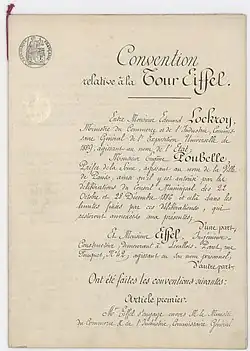 Convention
relative à la Tour Eiffel.
Entre Monsieur Edmond Lockroy,
Ministre du Commerce et de l'Industrie, Commis-
saire Général de l'Exposition Universelle de
1889, agissant au nom de l'État,
Monsieur Eugène Poubelle
Préfet de la Seine, agissant au nom de la Ville
de Paris, ainsi qu'il y est autorisé par les
délibérations du Conseil Municipal des 22
Octobre et 28 Décembre 1886 et cela dans les
limites fixées par ces délibérations qui
resteront annexées aux présentes;
d'une part,
Et Monsieur Eiffel, Ingénieur-
Constructeur demeurant à Levallois-Perret, rue
Fouquet, N° 42, agissant en son nom personnel,
d'autre part;
Ont été faites les conventions suivantes:
Article premier.
Mr Eiffel s'engage envers M. le Ministre
du Commerce & de l'Industrie, Commissaire Général